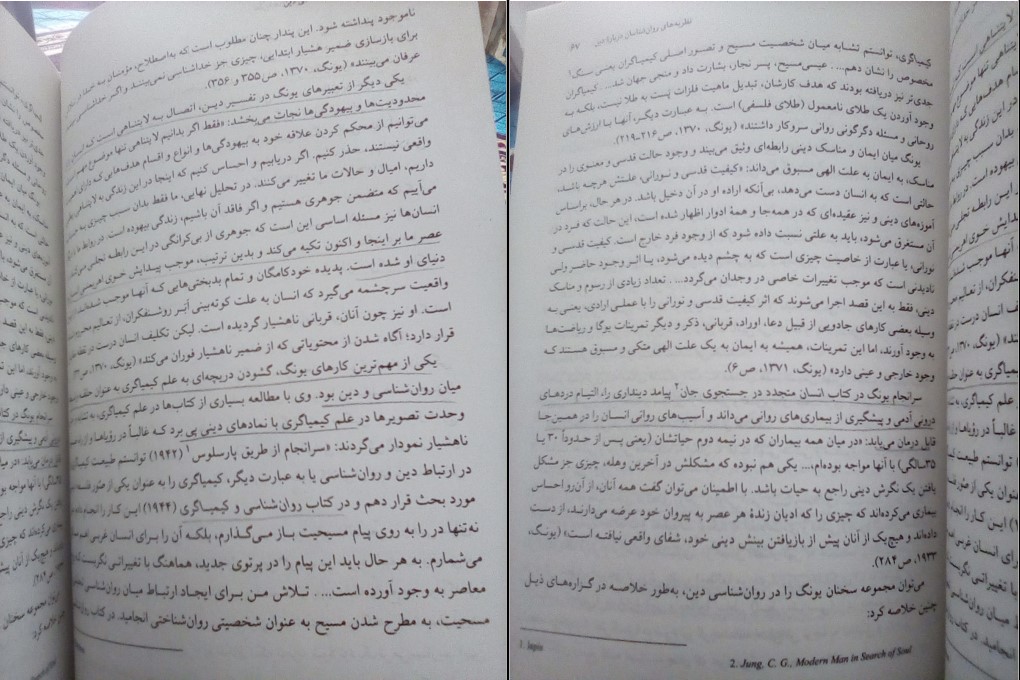 ناموجود پنداشته شود. این پندار چنان مطلوب است که به‌اصطلاح، مؤمنان به خدا در
برای بازسازی ضمیر هشیار ابتدایی، چیزی جز خداشناسی نمی‌بینند و اگر خداشناس
عرفان می‌بینند» (یونگ، ۱۳۷۰، ص۳۵۵ و ۳۵۶).
یکی دیگر از تعبیرهای یونگ در تفسیر دین، اتصال به لایتناهی است که انسان
محدودیت‌ها و بیهودگی‌ها نجات می‌بخشد: «فقط اگر بدانیم لایتناهی تنها موضوع مهم
می‌توانیم از محکم کردن علاقه خود به بیهودگی‌ها و انواع و اقسام هدف‌هایی که دارای
واقعی نیستند، حذر کنیم. اگر دریابیم و احساس کنیم که اینجا در این زندگی به لایتناهی
داریم، امیال و حالات ما تغییر می‌کنند. در تحلیل نهایی، ما فقط بدان سبب چیزی به
می‌آییم که متضمن جوهری هستیم و اگر فاقد آن باشیم، زندگی بیهوده است. در روابط ما
انسان‌ها نیز مسئله اساسی این است که جوهری از بی‌کرانگی در این رابطه تجلی می‌کند
عصر ما بر اینجا و اکنون تکیه می‌کند و بدین ترتیب، موجب پیدایش خوی اهریمنی
دنیای او شده است. پدیده خودکامگان و تمام بدبختی‌هایی که آنها موجب شده‌اند
واقعیت سرچشمه می‌گیرد که انسان به علت کوته‌بینی ابَر روشنفکران، از تعالیم
است. او نیز چون آنان، قربانی ناهشیار گردیده است. لیکن تکلیف انسان درست در نقطه
قرار دارد؛ آگاه شدن از محتویاتی که از ضمیر ناهشیار فوران می‌کند» (یونگ، ۱۳۷۰، ص
یکی از مهم‌ترین کارهای یونگ، گشودن دریچه‌ای به علم کیمیاگری به عنوان حلقه
میان روان‌شناسی و دین بود. وی با مطالعه بسیاری از کتاب‌ها در علم کیمیاگری، به
وحدت تصویرها در علم کیمیاگری با نمادهای دینی پی برد که غالباً در رؤیاها و
ناهشیار نمودار می‌گردند: «سرانجام از طریق پارسلوس۱ (۱۹۴۲) توانستم طبیعت کیمیاگری
در ارتباط دین و روان‌شناسی یا به عبارت دیگر، کیمیاگری را به عنوان یکی از صُوَر فلسفه
مورد بحث قرار دهم و در کتاب روان‌شناسی و کیمیاگری (۱۹۴۴) این کار را انجام دادم
نه‌تنها در را به روی پیام مسیحیت باز می‌گذارم، بلکه آن را برای انسان غربی
می‌شمارم. به هر حال باید این پیام را در پرتوی جدید، هماهنگ با تغییراتی نگریست که
معاصر به وجود آورده است.... . تلاش من برای ایجاد ارتباط میان روان‌شناسی
مسیحیت، به مطرح شدن مسیح به عنوان شخصیتی روان‌شناختی انجامید. در کتاب
نظریه‌های روان‌شناسان درباره دین ۶۷
کیمیاگری، توانستم تشابه میان شخصیت مسیح و تصور اصلی کیمیاگران یعنی سنگ۱
مخصوص را نشان دهم... . عیسی‌مسیح، پسر نجار، بشارت داد و منجی جهان شد.... کیمیاگران
جدی‌تر نیز دریافته بودند که هدف کارشان، تبدیل ماهیت فلزات پست به طلا نیست، بلکه به
وجود آوردن یک طلای نامعمول (طلای فلسفی) است. به عبارت دیگر، آنها با ارزش‌های
روحانی و مسئله دگرگونی روانی سروکار داشتند» (یونگ، ۱۳۷۰، ص۲۱۶ـ۲۱۹).
یونگ میان ایمان و مناسک دینی رابطه‌ای وثیق می‌بیند و وجود حالت قدسی و معنوی را در
مناسک، به ایمان به علت الهی مسبوق می‌داند: «کیفیت قدسی و نورانی، علتش هرچه باشد،
حالتی است که به انسان دست می‌دهد، بی‌آنکه اراده او در آن دخیل باشد. در هر حال، براساس
آموزه‌های دینی و نیز عقیده‌ای که در همه‌جا و همهٔ ادوار اظهار شده است، این حالت که فرد در
آن مستغرق می‌شود، باید به علتی نسبت داده شود که از وجود فرد خارج است. کیفیت قدسی و
نورانی، یا عبارت از خاصیت چیزی است که به چشم دیده می‌شود، یا اثر وجود حاضر ولی
نادیدنی است که موجب تغییرات خاصی در وجدان می‌گردد... . تعداد زیادی از رسوم و مناسک
دینی، فقط به این قصد اجرا می‌شوند که اثر کیفیت قدسی و نورانی را با عملی ارادی، یعنی به
وسیله بعضی کارهای جادویی از قبیل دعا، اوراد، قربانی، ذکر و دیگر تمرینات یوگا و ریاضت‌ها
به وجود آورند، اما این تمرینات، همیشه به ایمان به یک علت الهی متکی و مسبوق هستند که
وجود خارجی و عینی دارد» (یونگ، ۱۳۷۱، ص۶).
سرانجام یونگ در کتاب انسان متجدد در جستجوی جان۲ پیامد دینداری را، التیام دردهای
درونی آدمی و پیشگیری از بیماری‌های روانی می‌داند و آسیب‌های روانی انسان را در همین‌جا
قابل درمان می‌یابد: «در میان همه بیماران که در نیمه دوم حیاتشان (یعنی پس از حدوداً ۳۰ یا
۳۵سالگی) با آنها مواجه بوده‌ام،... یکی هم نبوده که مشکلش در آخرین وهله، چیزی جز مشکل
یافتن یک نگرش دینی راجع به حیات باشد. با اطمینان می‌توان گفت همه آنان، از آن‌رو احساس
بیماری می‌کرده‌اند که چیزی را که ادیان زندهٔ هر عصر به پیروان خود عرضه می‌دارند، از دست
داده‌اند و هیچ‌یک از آنان پیش از بازیافتن بینش دینی خود، شفای واقعی نیافته است» (یونگ،
۱۹۳۳، ص۲۸۴).
می‌توان مجموعه سخنان یونگ را در روان‌شناسی دین، به‌طور خلاصه در گزاره‌های ذیل
چنین خلاصه کرد:
1. lapis
2. Jung, C. G., Modern Man in Search of Soul